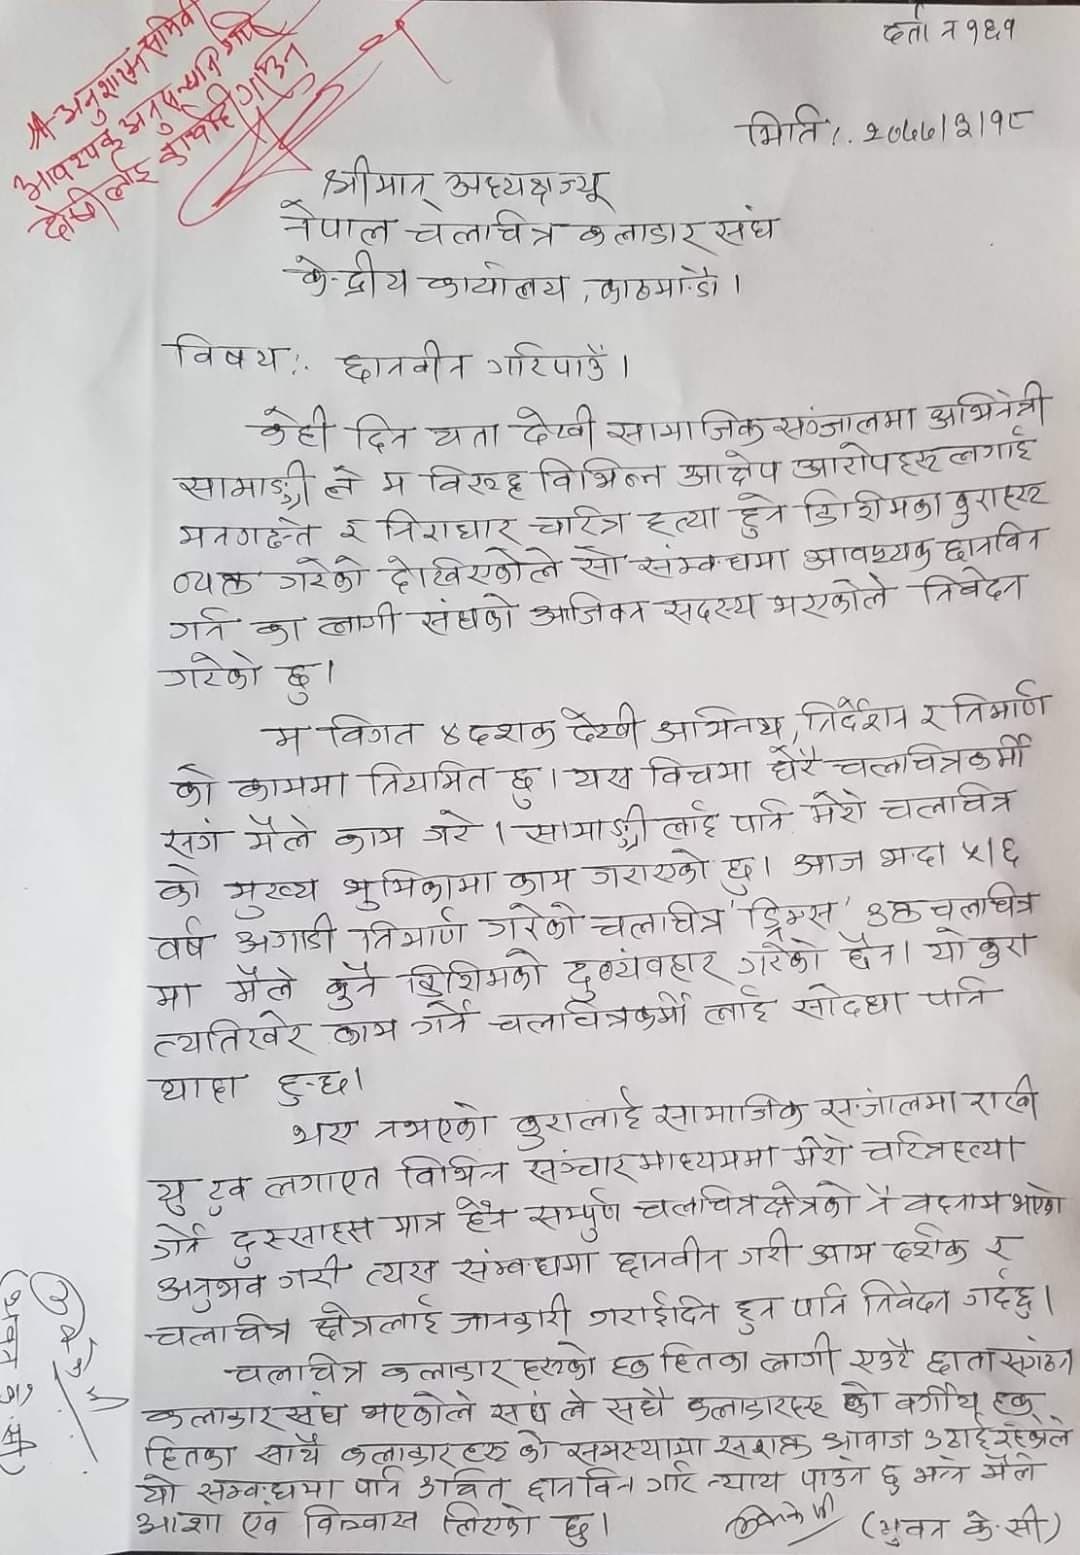 दर्ता न १६१
श्री अनुशासन समिती
आवश्यक अनुसन्धान गरी
दोषीलाई कार्वाही गर्नु
मिति:. २०७७।३।१८
श्रीमान् अध्यक्षज्यू
नेपाल चलचित्र कलाकार संघ
केन्द्रीय कार्यालय, काठमाण्डौ ।
विषय:. छानवीन गरिपाउँ ।
केही दिन यता देखी सामाजिक सञ्जालमा अभिनेत्री
सामाङ्ग्री ले म विरुद्द विभिन्न आक्षेप आरोपहरु लगाई
मनगढन्ते र निराधार चरित्र हत्या हुने किशिमका कुराहरु
व्यक्त गरेको देखिएकोले सो संम्वन्धमा आवश्यक छानविन
गर्न का लागी संघको आजिवन सदस्य भएकोले निवेदन
गरेको छु ।
म विगत ४ दशक देखी अभिनय, निर्देशन र निर्माण
को काममा नियमित छु । यस विचमा धेरै चलचित्रकर्मी
सगं मैले काम गरे । सामाङ्ग्री लाई पनि मेरो चलचित्र
को मुख्य भुमिकामा काम गराएको छु । आज भन्दा ५।६
वर्ष अगाडी निर्माण गरेको चलचित्र 'ड्रिम्स' उक्त चलचित्र
मा मैले कुनै किशिमको दुर्व्यवहार गरेको छैन । यो कुरा
त्यतिखेर काम गर्ने चलचित्रकर्मी लाई सोद्धा पनि
थाहा हुन्छ ।
भए नभएको कुरालाई सामाजिक सन्जालमा राखी
यु टुव लगाएत विभिन्न सञ्चारमाध्यममा मेरो चरित्रहत्या
गर्ने दुस्साहस मात्र हैन सम्पुर्ण चलचित्रक्षेत्रको नै वदनाम भएको
अनुभव गरी त्यस संम्वन्धमा छानवीन गरी आम दर्शक र
चलचित्र क्षेत्रलाई जानकारी गराईदिन हुन पनि निवेदन गर्दछु ।
चलचित्र कलाकार हरुको हक हितका लागी एउटै छाता संगठन
कलाकार संघ भएकोले संघ ले सधै कलाकारहरु को वर्गीय हक
हितका साथै कलाकार हरु को समस्यामा सशक्त आवाज उठाई रहेकोले
यो सम्वन्धमा पनि उचित छानविन गरि न्याय पाउने छु भन्ने मैले
आशा एवं विश्वास लिएको छु ।
(भुवन के.सी)